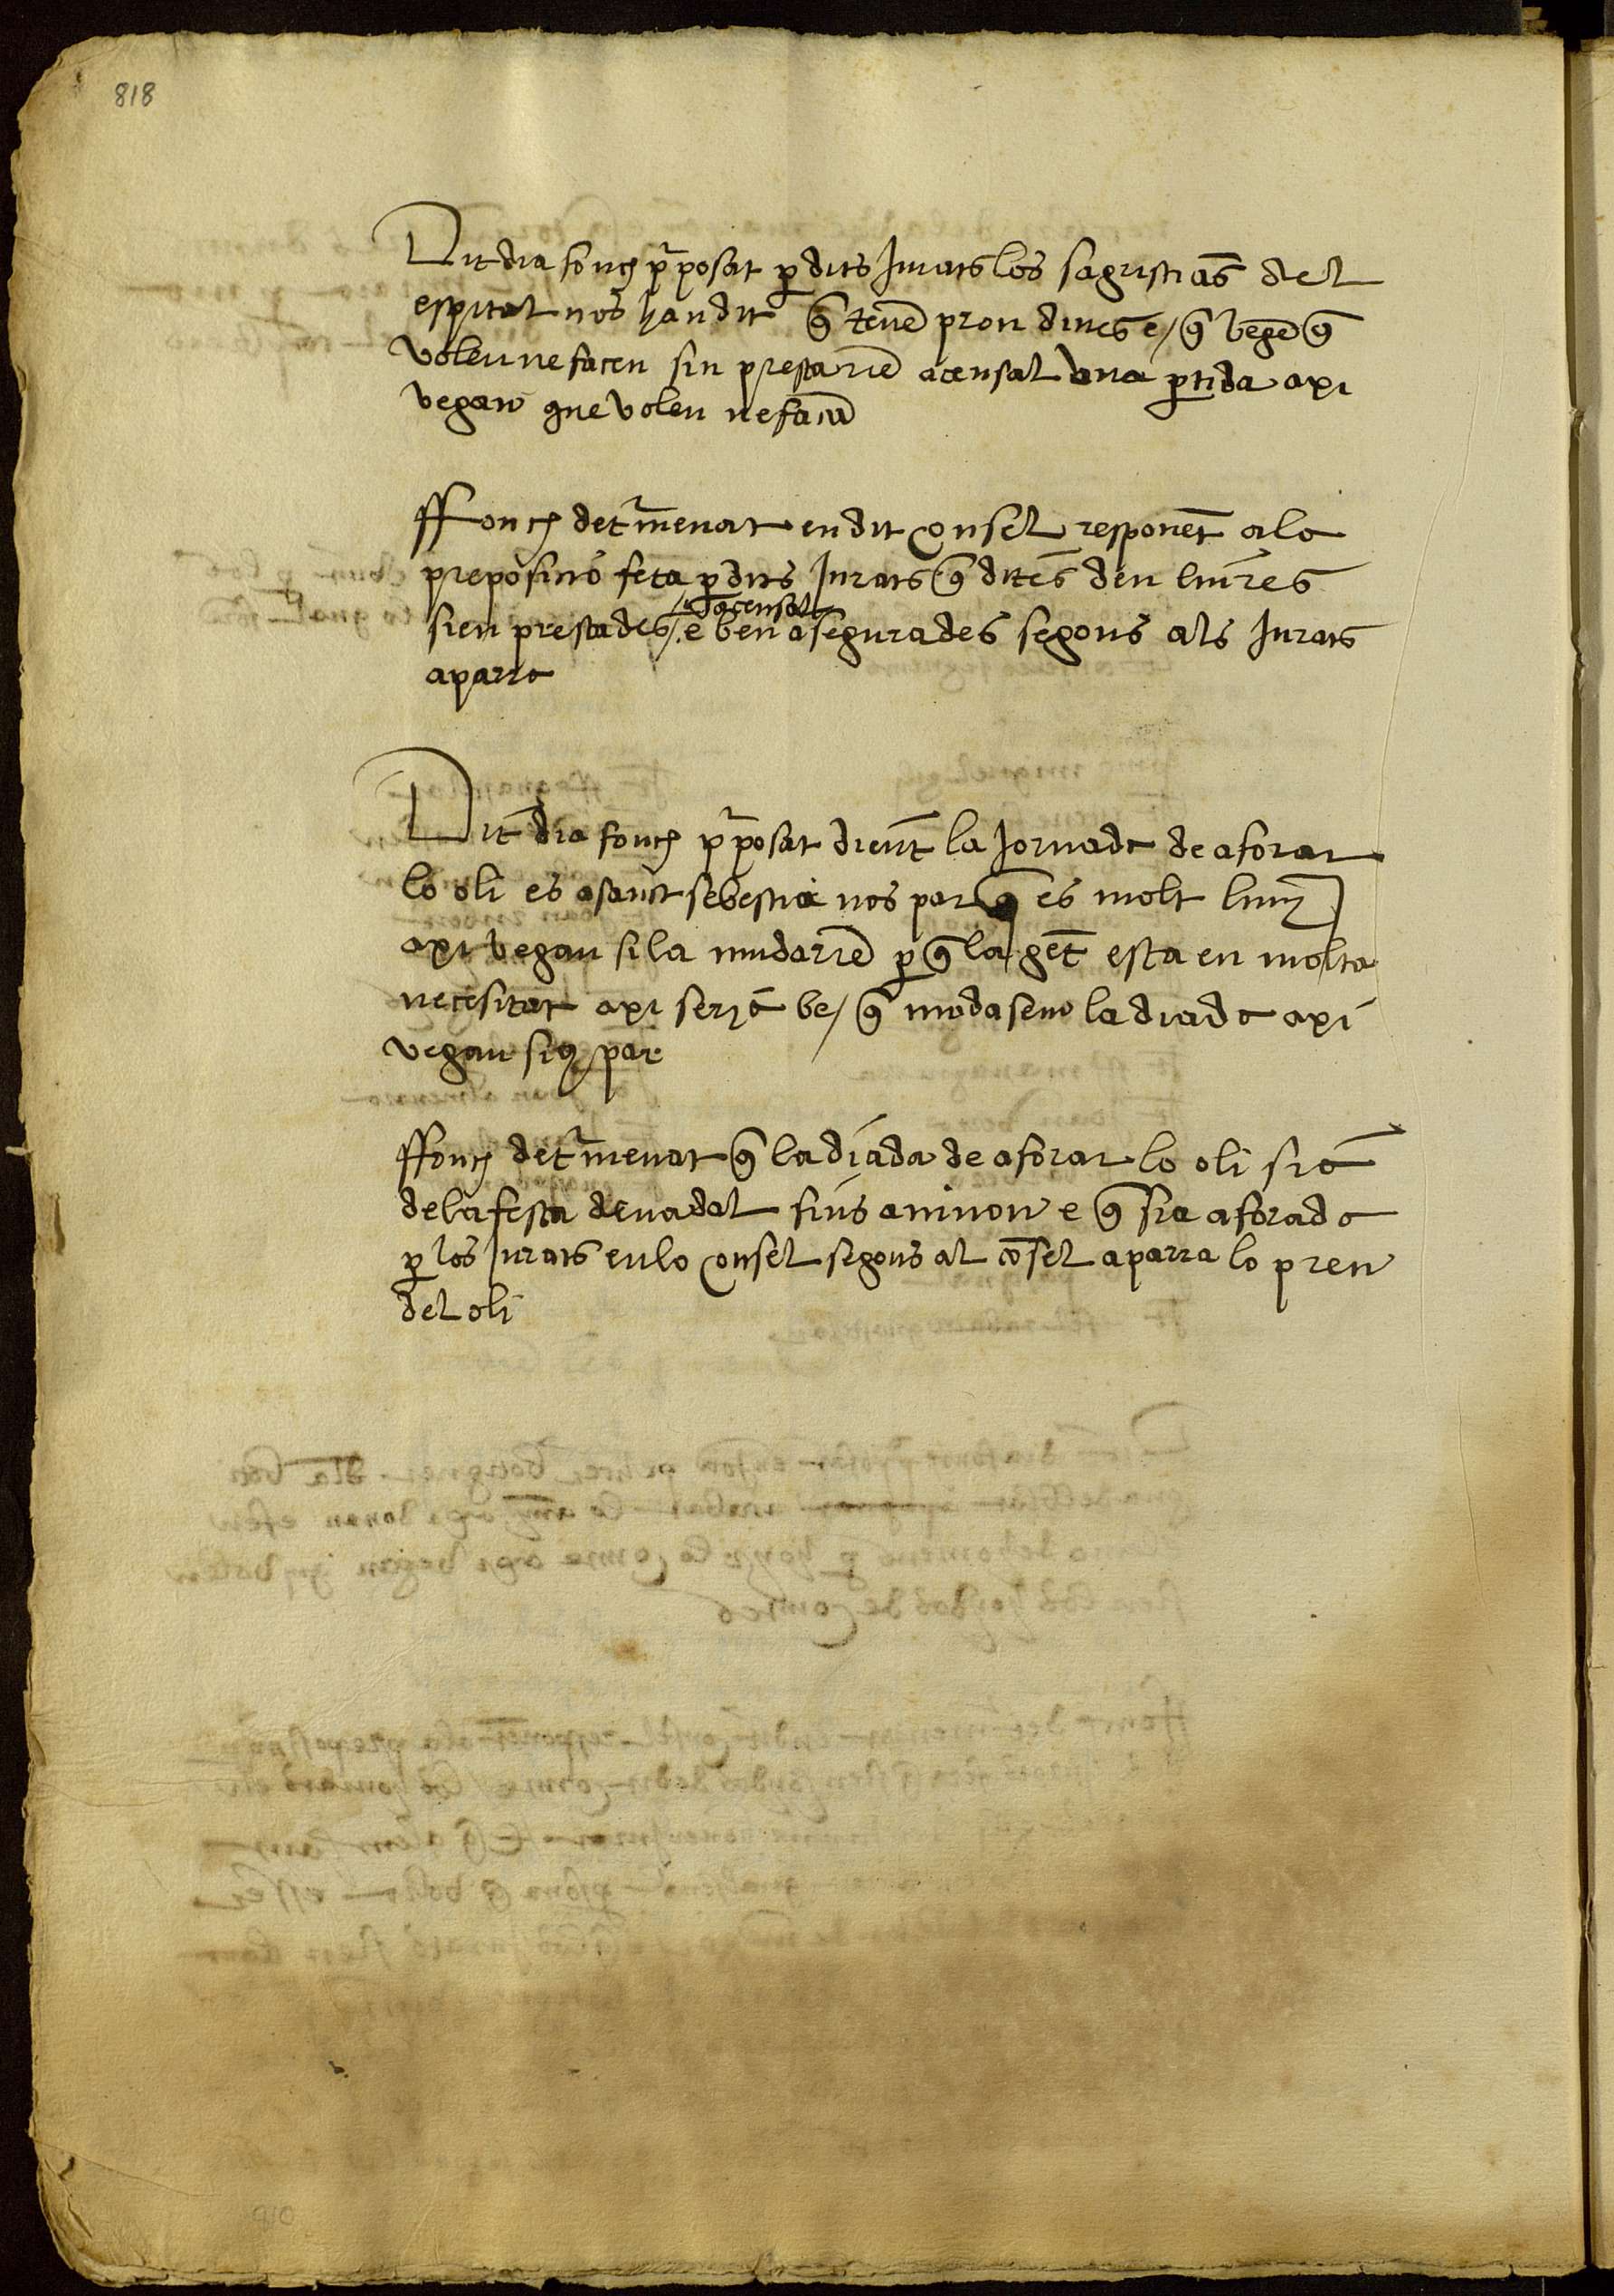 818
Dit dia fonch p̄posat p̱ dits Jurats los sagristās del
espital nos han dit q̄ tenē pron dines e / q̄ vegē q̄
voleu ne facen sin prestariē acensal vna p̱tida axi
vegau que voleu ne facā
ffonch det̄menat en dit consel responēt ala
preposicio feta p̱ dits Jurats q̄ dites deu liures
acensal
sien prestades / e ben asegurades segons als Jurats
aparra
Dit dia fonch p̄posat dient la Jornada de aforar
lo oli es a sanct sebestia nos par q̄ es molt luny
axi vegau si la mudariē p̱ q̄ la gēt esta en molta
necesitat axi seria be / q̄ mudasem la diada axi
vegau siq̄ par
ffonch det̄menat q̄ la diada de aforar lo oli sia
de la festa de nadal fins aninou e q̄ sia aforada
p̱ los Jurats en lo consel segons al cōsel aparra lo preu
del oli